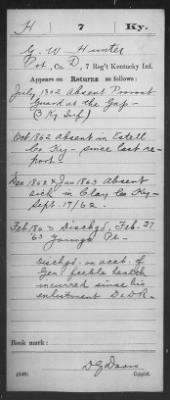 H | 7 | Ky.
G. W. Hunter
Pvt., Co. D, 7 Reg't Kentucky Inf.
Appears on Returns as follows:
July, 1862 Absent Provost
Guard at the Gap -
(3 Ky Inf)
Oct 1862 Absent in Estell
Co Ky - since last re-
port
Dec 1862 & Jan 1863 Absent
sick in Clay Co Ky -
Sept. 17/62 -
Feb 1863 Dischgd. Feb. 27
'63 Youngs Pt.
dischgd. on acct. of
Gen' feeble health
incurred since his
enlistment
Book mark:
Copyist.